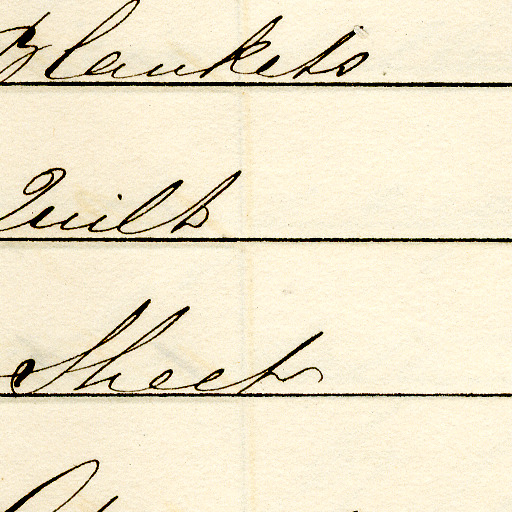 Blankets
Quilts
Sheets